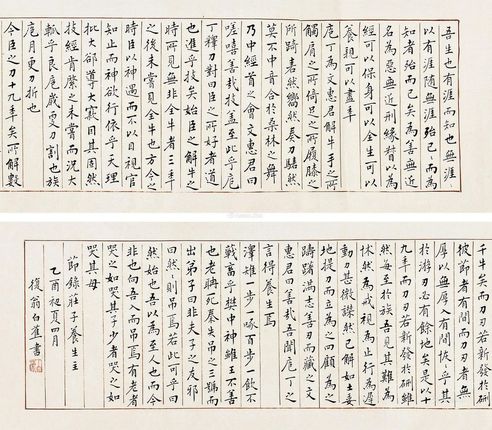 吾生也有涯而知也無涯〻
以有涯随無涯殆已〻而為
知者殆而已矣為善無近
名為惡無近刑緣督以為
經可以保身可以全生可以
養親可以盡年
庖丁為文惠君解牛手之所
觸肩之所倚足之所履膝之
所踦砉然嚮然奏刀騞然
莫不中音合於桑林之舞
乃中經首之會文惠君曰
嗟嘻善哉技盖至此乎庖
丁釋刀對曰臣之所好者道
也進乎技矣始臣之解牛之
時所見無非全牛者三年
之後未嘗見全牛也方今之
時臣以神遇而不以目視官
知止而神欲行依乎天理
批大郤導大窾因其固然
技經肯綮之未嘗而況大
軱乎良庖歲更刀割也族
庖月更刀折也
今臣之刀十九年矣所解數
千牛矣而刀刃若新發於硎
彼節者有間而刀刃者無
厚以無厚入有間恢〻乎其
於游刃必有餘地矣是以十
九年而刀刃若新發於硎雖
然每至於族吾見其難為
怵然為戒視為止行為遲
動刀甚微謋然已解如土委
地提刀而立為之四顧為之
躊躇滿志善刀而藏之文
惠君曰善哉吾聞庖丁之
言得養生焉
澤雉十步一啄百步一飲不
蘄畜乎樊中神雖王不善
也老聃死秦失弔之三號而
出弟子曰非夫子之友邪
曰然〻則弔焉若此可乎曰
然始也吾以為至人也而今
非也向吾入而弔焉有老者
哭之如哭其子少者哭之如
哭其母
節錄莊子養生主
乙酉初夏四月
復翁白蕉書